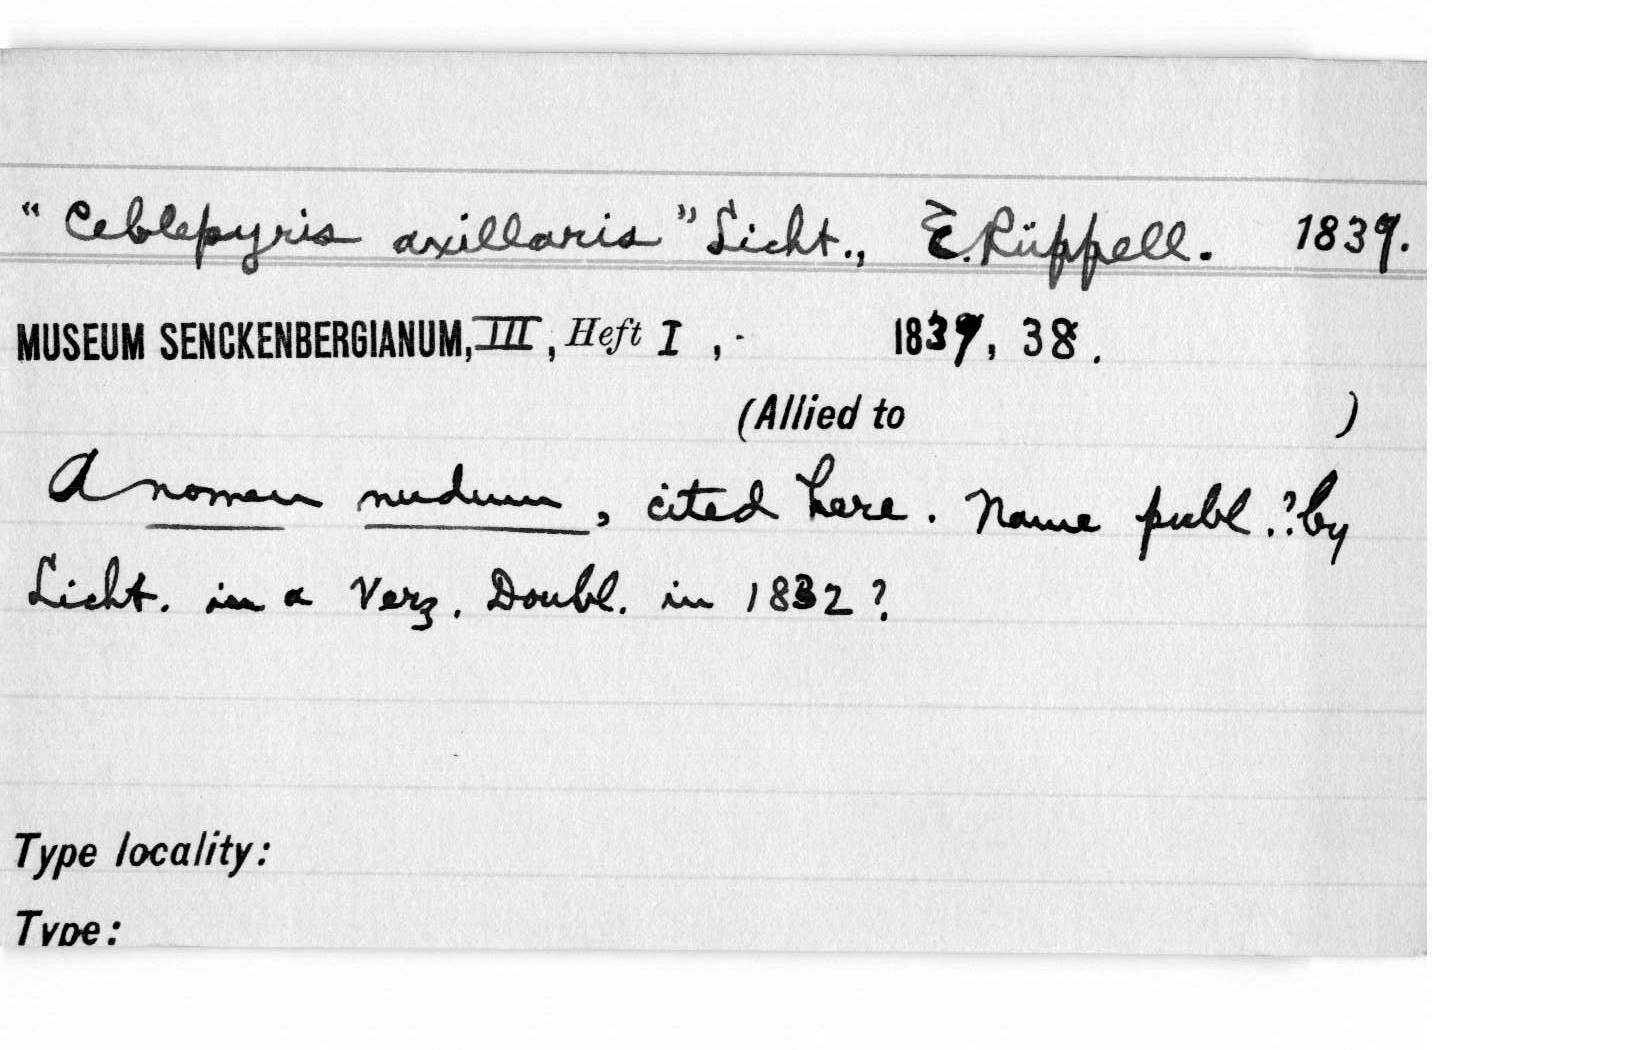 “ Ceblepyris axillaris ” Licht., E. Rüppell. 1839.
MUSEUM SENCKENBERGIANUM, III, Heft I , - 1839, 38.
(Allied to )
A nomen nudum, cited here. Name publ.? by
Licht. in a Verz. Doubl. in 1832?
Type locality:
Type: